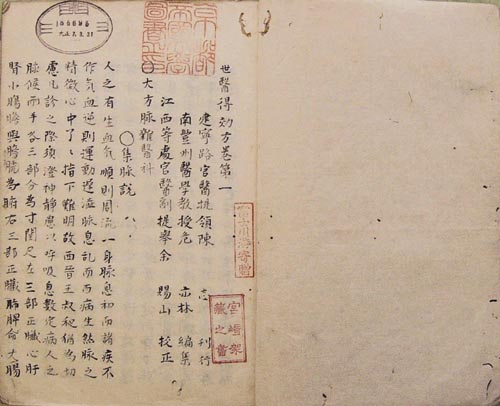 世醫得効方卷第一
建寧路官醫提領陳 志 刊行
南豐州醫學教授危 亦林 編集
江西等處官醫副提擧余 賜山 校正
○大方脉雜醫科
○集脉說
人之有生血氣順則周流一身脉息和而諸疾不
作氣血逆則運動遲澁脉息乱而百病生然脉之
精微心中了了指下難明故西晋王叔和猶為切
慮凡診之際須澄神静慮以呼吸息數定病人之
脉候両手各三部分為寸関尺左三部正臓心肝
腎小膓膽與膀胱為腑右三部正臓肺脾命大膓
京都帝國大學圖書之印
富士川游寄贈
宮崎架藏之書